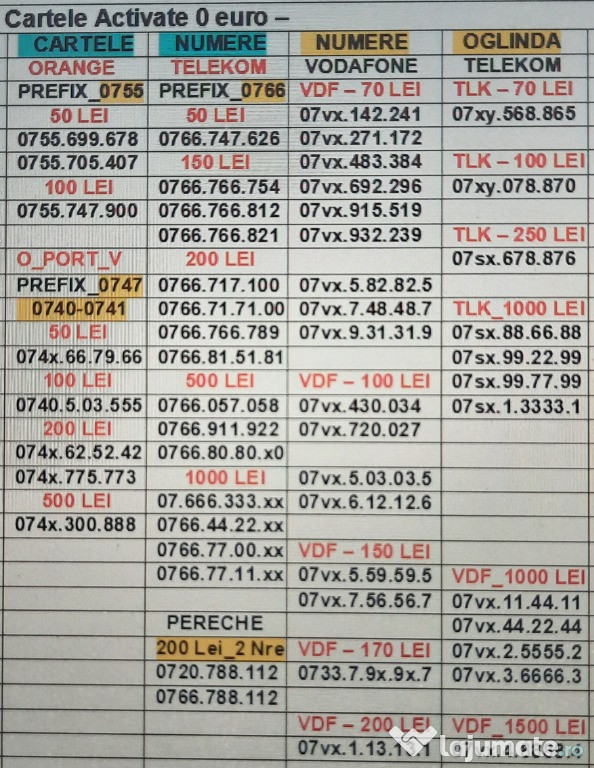 Cartele Activate 0 euro –
CARTELE NUMERE NUMERE OGLINDA
ORANGE TELEKOM VODAFONE TELEKOM
PREFIX_0755 PREFIX_0766 VDF – 70 LEI TLK – 70 LEI
50 LEI 50 LEI 07vx.142.241 07xy.568.865
0755.699.678 0766.747.626 07vx.271.172
0755.705.407 150 LEI 07vx.483.384 TLK – 100 LEI
100 LEI 0766.766.754 07vx.692.296 07xy.078.870
0755.747.900 0766.766.812 07vx.915.519
0766.766.821 07vx.932.239 TLK – 250 LEI
O_PORT_V 200 LEI 07sx.678.876
PREFIX_0747 0766.717.100 07vx.5.82.82.5
0740-0741 0766.71.71.00 07vx.7.48.48.7 TLK_1000 LEI
50 LEI 0766.766.789 07vx.9.31.31.9 07sx.88.66.88
074x.66.79.66 0766.81.51.81 07sx.99.22.99
100 LEI 500 LEI VDF – 100 LEI 07sx.99.77.99
0740.5.03.555 0766.057.058 07vx.430.034 07sx.1.3333.1
200 LEI 0766.911.922 07vx.720.027
074x.62.52.42 0766.80.80.x0
074x.775.773 1000 LEI 07vx.5.03.03.5
500 LEI 07.666.333.xx 07vx.6.12.12.6
074x.300.888 0766.44.22.xx
0766.77.00.xx VDF – 150 LEI
0766.77.11.xx 07vx.5.59.59.5 VDF_1000 LEI
07vx.7.56.56.7 07vx.11.44.11
PERECHE 07vx.44.22.44
200 Lei_2 Nre VDF – 170 LEI 07vx.2.5555.2
0720.788.112 0733.7.9x.9x.7 07vx.3.6666.3
0766.788.112
VDF – 200 LEI VDF_1500 LEI
lajumate.ro